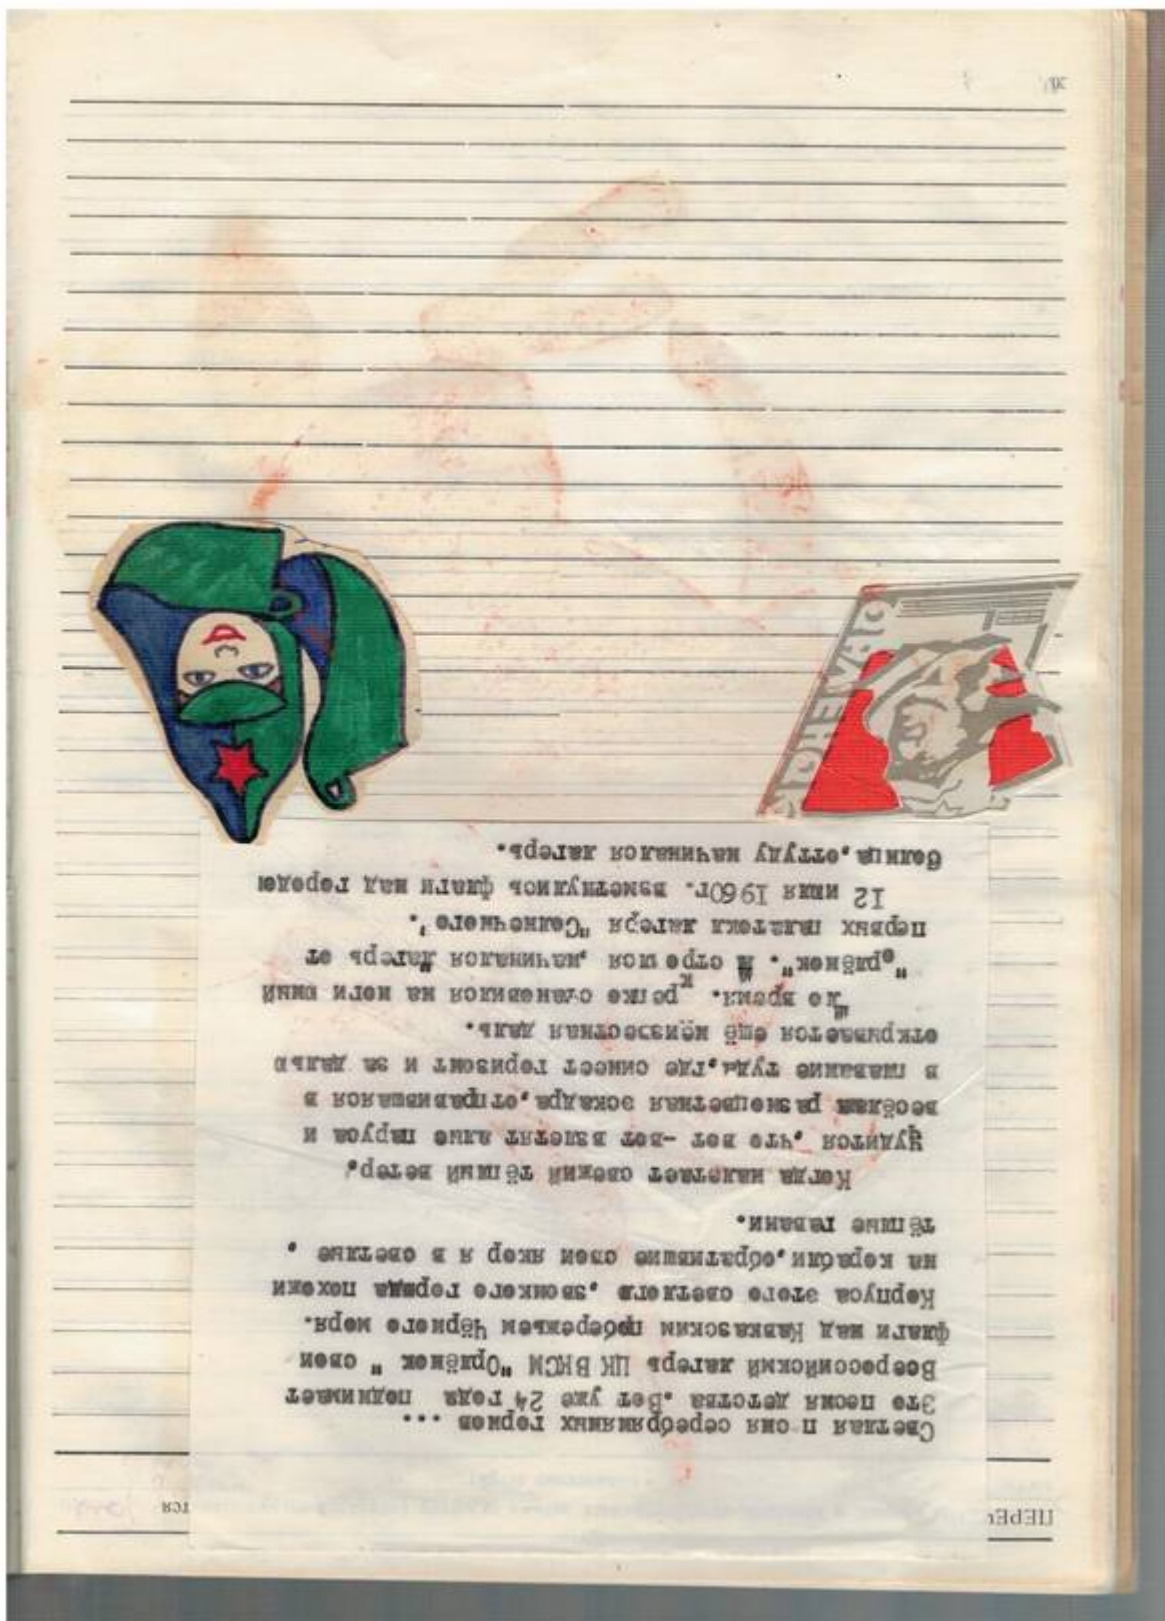 Светлая п сня серебрянияных горнов ...
Это песня детства .Вот уже 24 года поднимает
Всероссийский лагерь ЦК ВЛКСМ "Орлёнок " свои
флаги над Кавказским побережьем Чёрного моря.
Корпуса этого светлого ,звонкого города похожи
на корабли,обратившие свои якор я в светлые ,
тёплые гавани.
Когда налетает свежий тёплый ветер,
чудится ,что вот -вот взлетят алые паруса и
весёлая разноцветная эскадра,отправившаяся в
в плавание туда,где синеет горизонт и за далью
открывается ещё неизвестная даль.
Шло время. Крепко становился на ноги юный
"орлёнок". И строился ,начинался лагерь от
первых палаток лагеря "Солнечного".
12 июля 1960г. взметнулись флаги над городом
солнца,оттуду начинался лагерь.